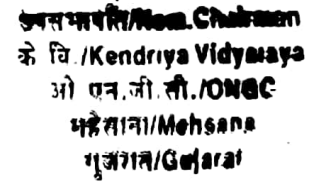 उपसभापति/Nom.Chairman
के वि./Kendriya Vidyalaya
ओ एन.जी.सी./ONGC
महेसाना/Mehsana
गुजरात/Gujarat